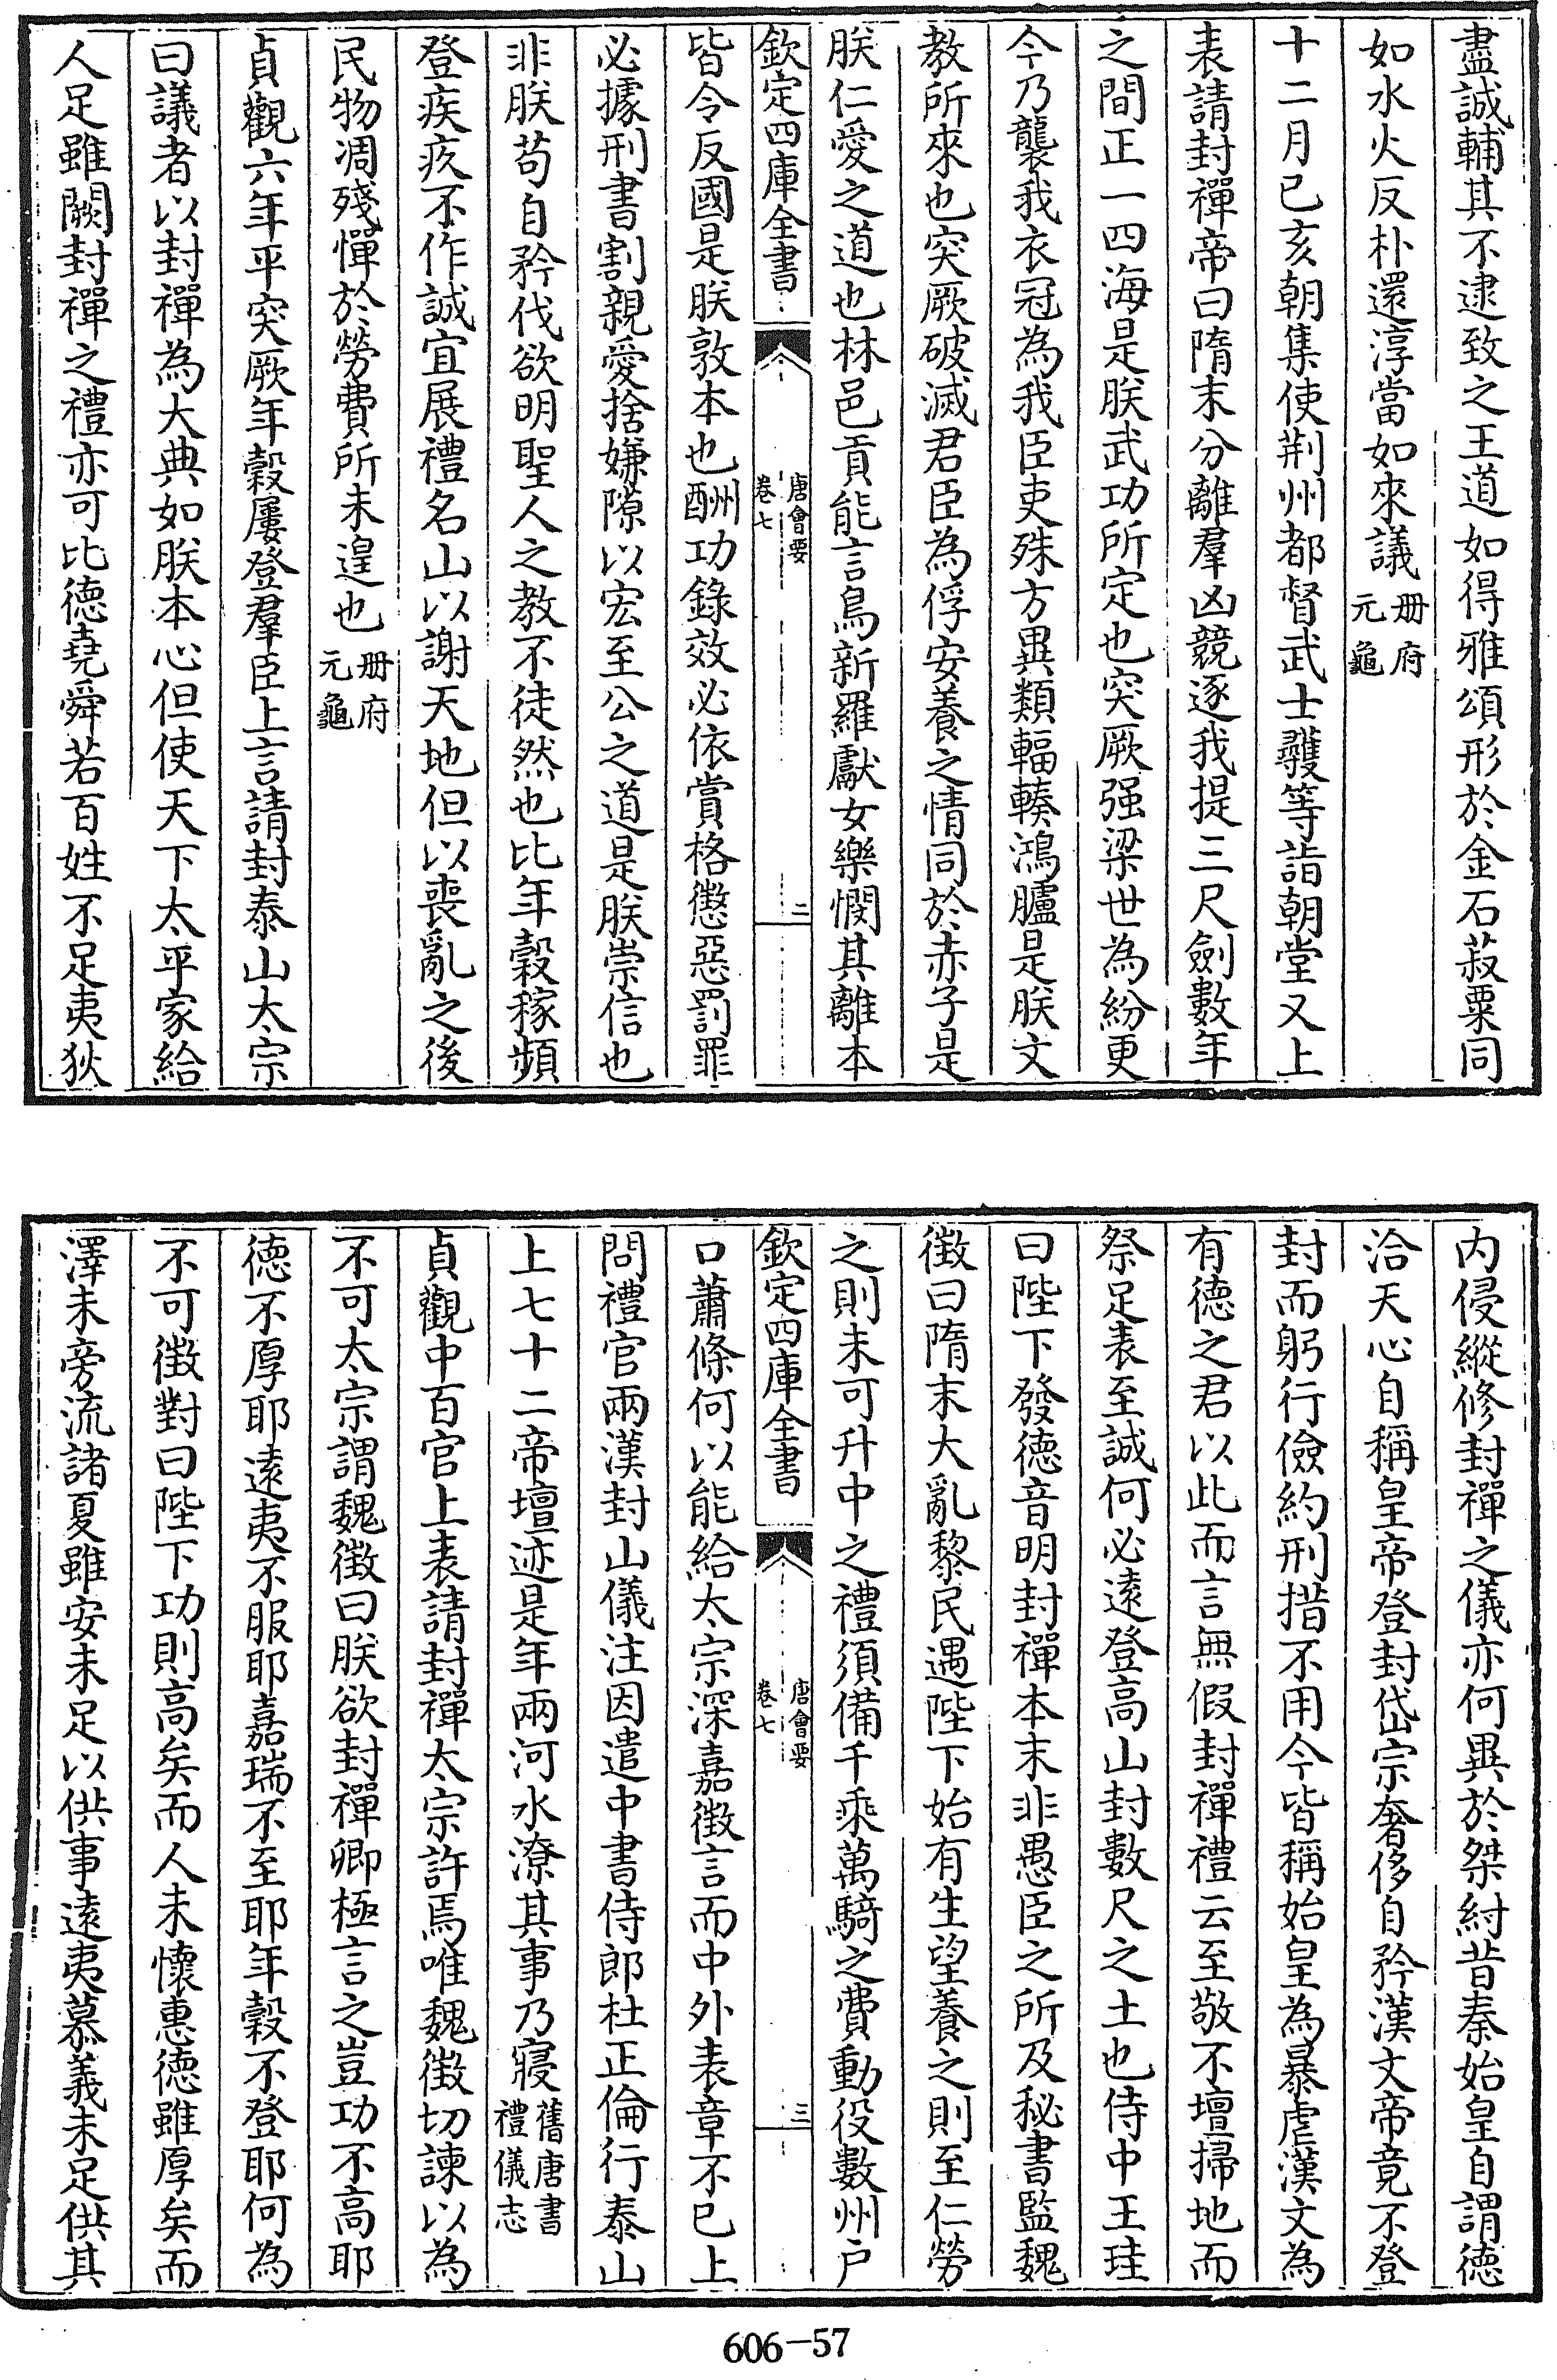 盡誠輔其不逮致之王道如得雅頌形於金石菽粟同
如水火反朴還淳當如來議册府元龜
十二月己亥朝集使荆州都督武士彠等詣朝堂又上
表請封禪帝曰隋末分離羣凶競逐我提三尺劍數年
之間正一四海是朕武功所定也突厥强梁世為紛更
今乃襲我衣冠為我臣吏殊方異類輻輳鴻臚是朕文
教所來也突厥破滅君臣為俘安養之情同於赤子是
朕仁愛之道也林邑貢能言鳥新羅獻女樂憫其離本
欽定四庫全書
唐會要
卷七
二
皆令反國是朕敦本也酬功錄效必依賞格懲惡罰罪
必據刑書割親愛捨嫌隙以宏至公之道是朕崇信也
非朕苟自矜伐欲明聖人之教不徒然也比年穀稼頻
登疾疚不作誠宜展禮名山以謝天地但以喪亂之後
民物凋殘憚於勞費所未遑也册府元龜
貞觀六年平突厥年穀屢登羣臣上言請封泰山太宗
曰議者以封禪為大典如朕本心但使天下太平家給
人足雖闕封禪之禮亦可比德堯舜若百姓不足夷狄
内侵縱修封禪之儀亦何異於桀紂昔秦始皇自謂德
洽天心自稱皇帝登封岱宗奢侈自矜漢文帝竟不登
封而躬行儉約刑措不用今皆稱始皇為暴虐漢文為
有德之君以此而言無假封禪禮云至敬不壇掃地而
祭足表至誠何必遠登高山封數尺之土也侍中王珪
曰陛下發德音明封禪本末非愚臣之所及秘書監魏
徵曰隋末大亂黎民遇陛下始有生望養之則至仁勞
之則未可升中之禮須備千乘萬騎之費動役數州户
欽定四庫全書
唐會要
卷七
三
口蕭條何以能給太宗深嘉徵言而中外表章不已上
問禮官兩漢封山儀注因遣中書侍郎杜正倫行泰山
上七十二帝壇迹是年兩河水潦其事乃寢舊唐書禮儀志
貞觀中百官上表請封禪太宗許焉唯魏徵切諫以為
不可太宗謂魏徵曰朕欲封禪卿極言之豈功不高耶
德不厚耶遠夷不服耶嘉瑞不至耶年穀不登耶何為
不可徵對曰陛下功則高矣而人未懷惠德雖厚矣而
澤未旁流諸夏雖安未足以供事遠夷慕義未足供其
606-57